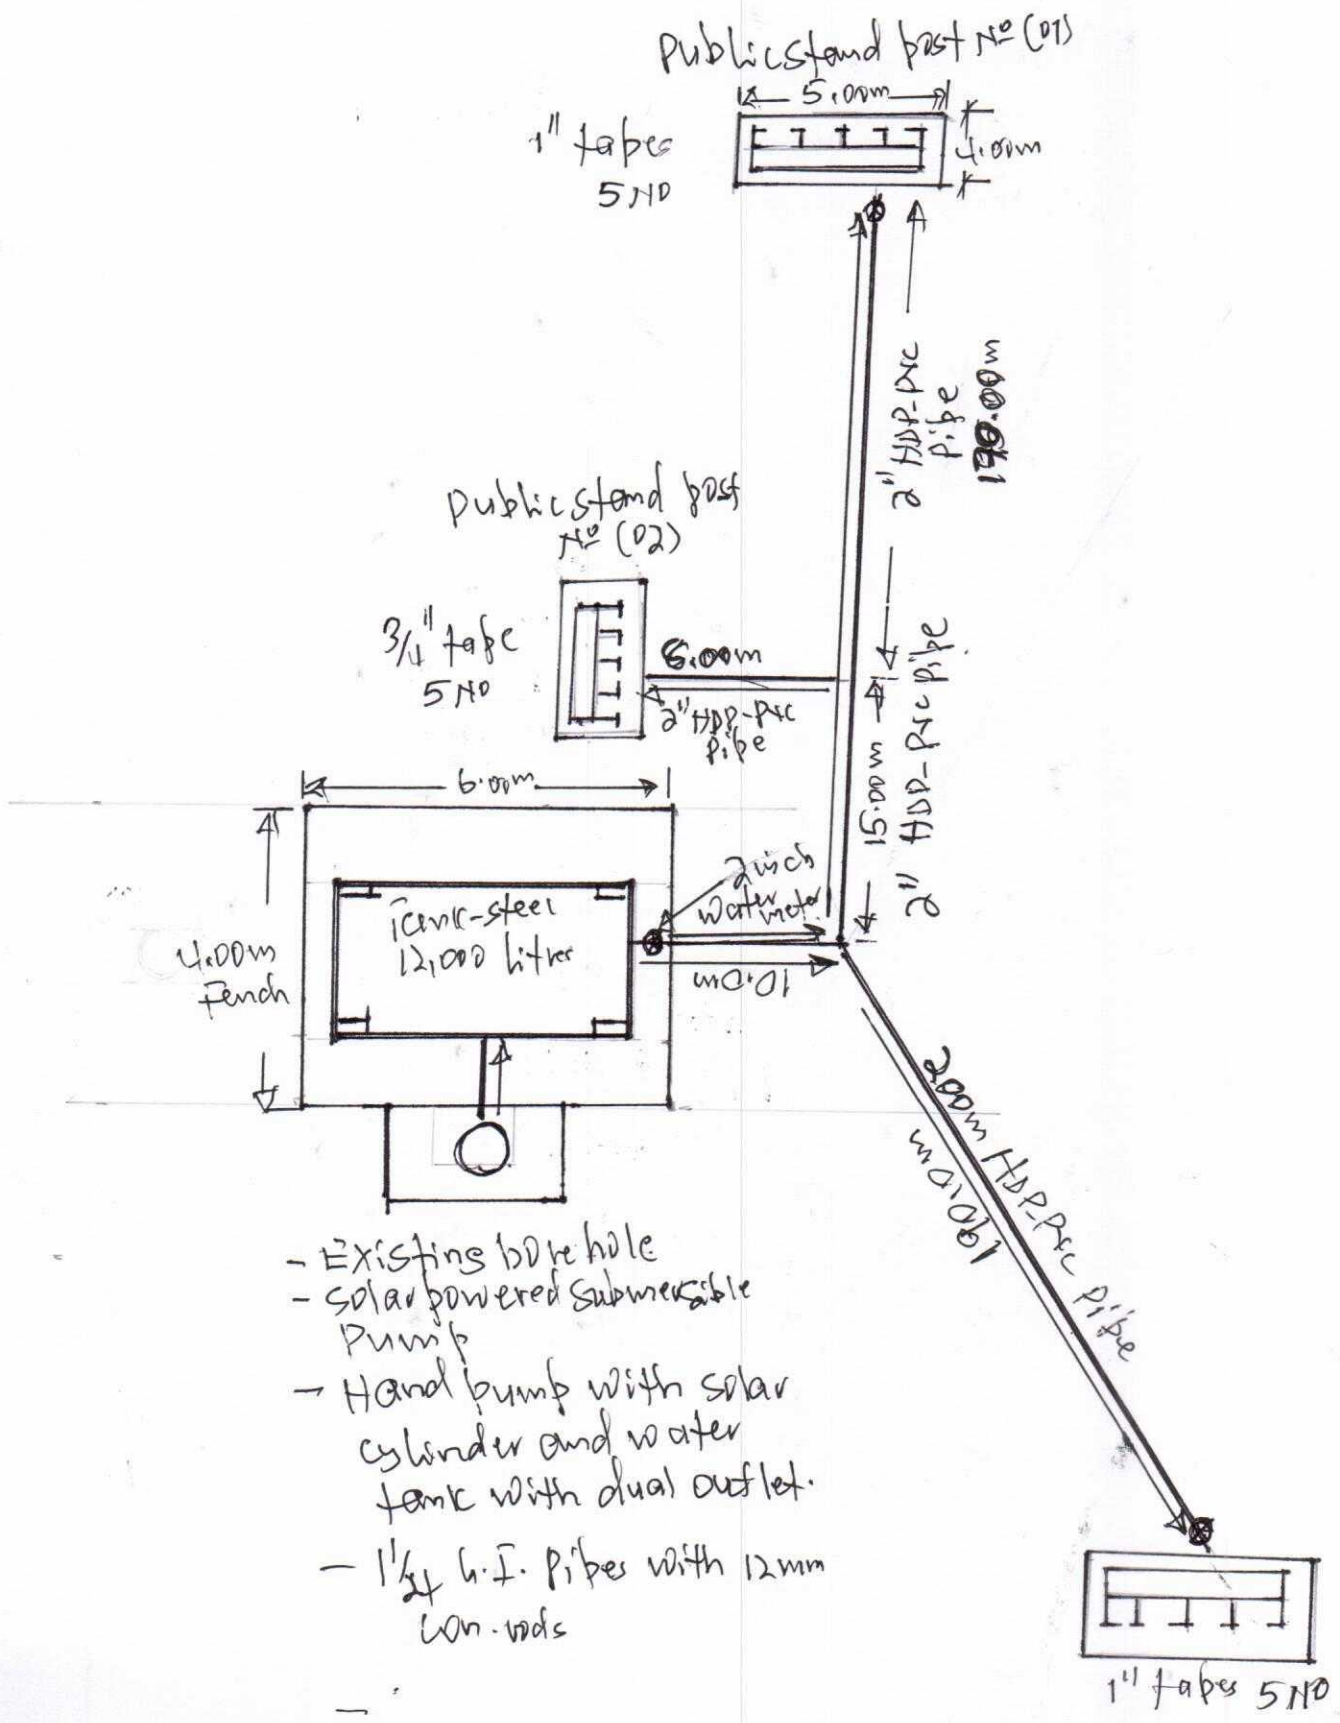 Public stand post Nº (01)
5.00m
4.00m
1" tapes
5 NO
2" HDP-PVC
Pipe
Public stand post
Nº (02)
3/4" tape
5 NO
6.00m
2" HDP-PVC
Pipe
15.00m
2" HDP-PVC Pipe
6.00m
2 inch
water
meter
10.0m
Tank-steel
12,000 litres
4.00m
Fench
200m HDP-PVC Pipe
190.0m
- Existing bore hole
- Solar powered Submersible
Pump
- Hand pump with solar
cylinder and water
tank with dual outlet.
- 1 1/4 G.I. Pipes with 12mm
con. rods
-
1" tapes 5 NO